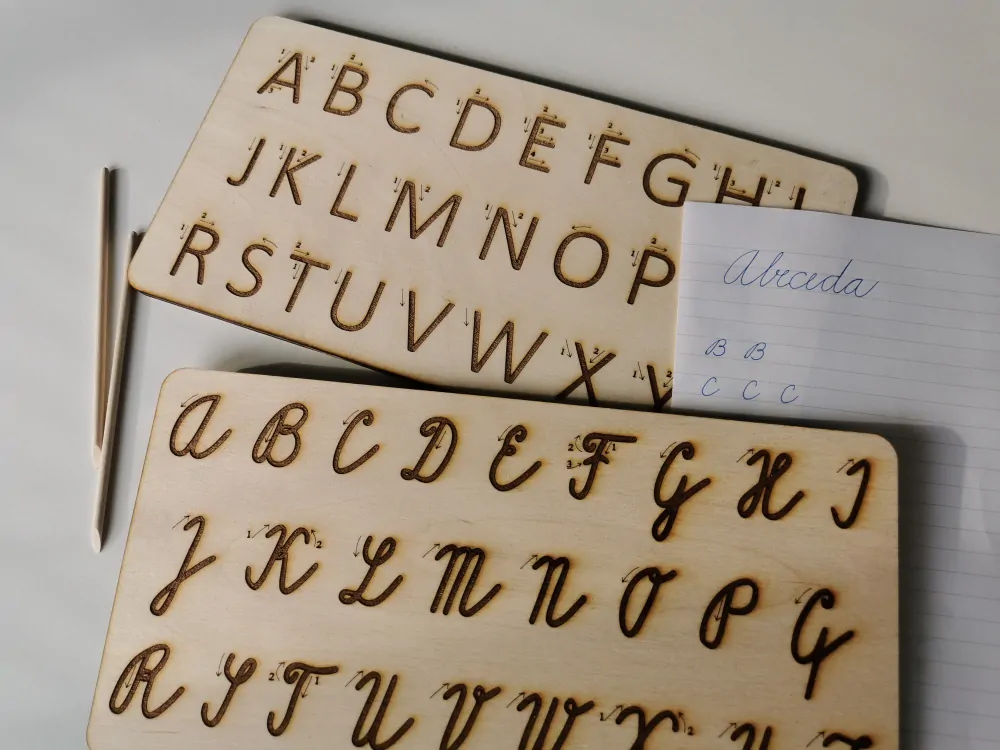 A B C D E F G H I
J K L M N O P
R S T U V W X Y
Abeceda
B B
C C C
A B C D E F G H I
J K L M N O P Q
R S T U V W X Y Z